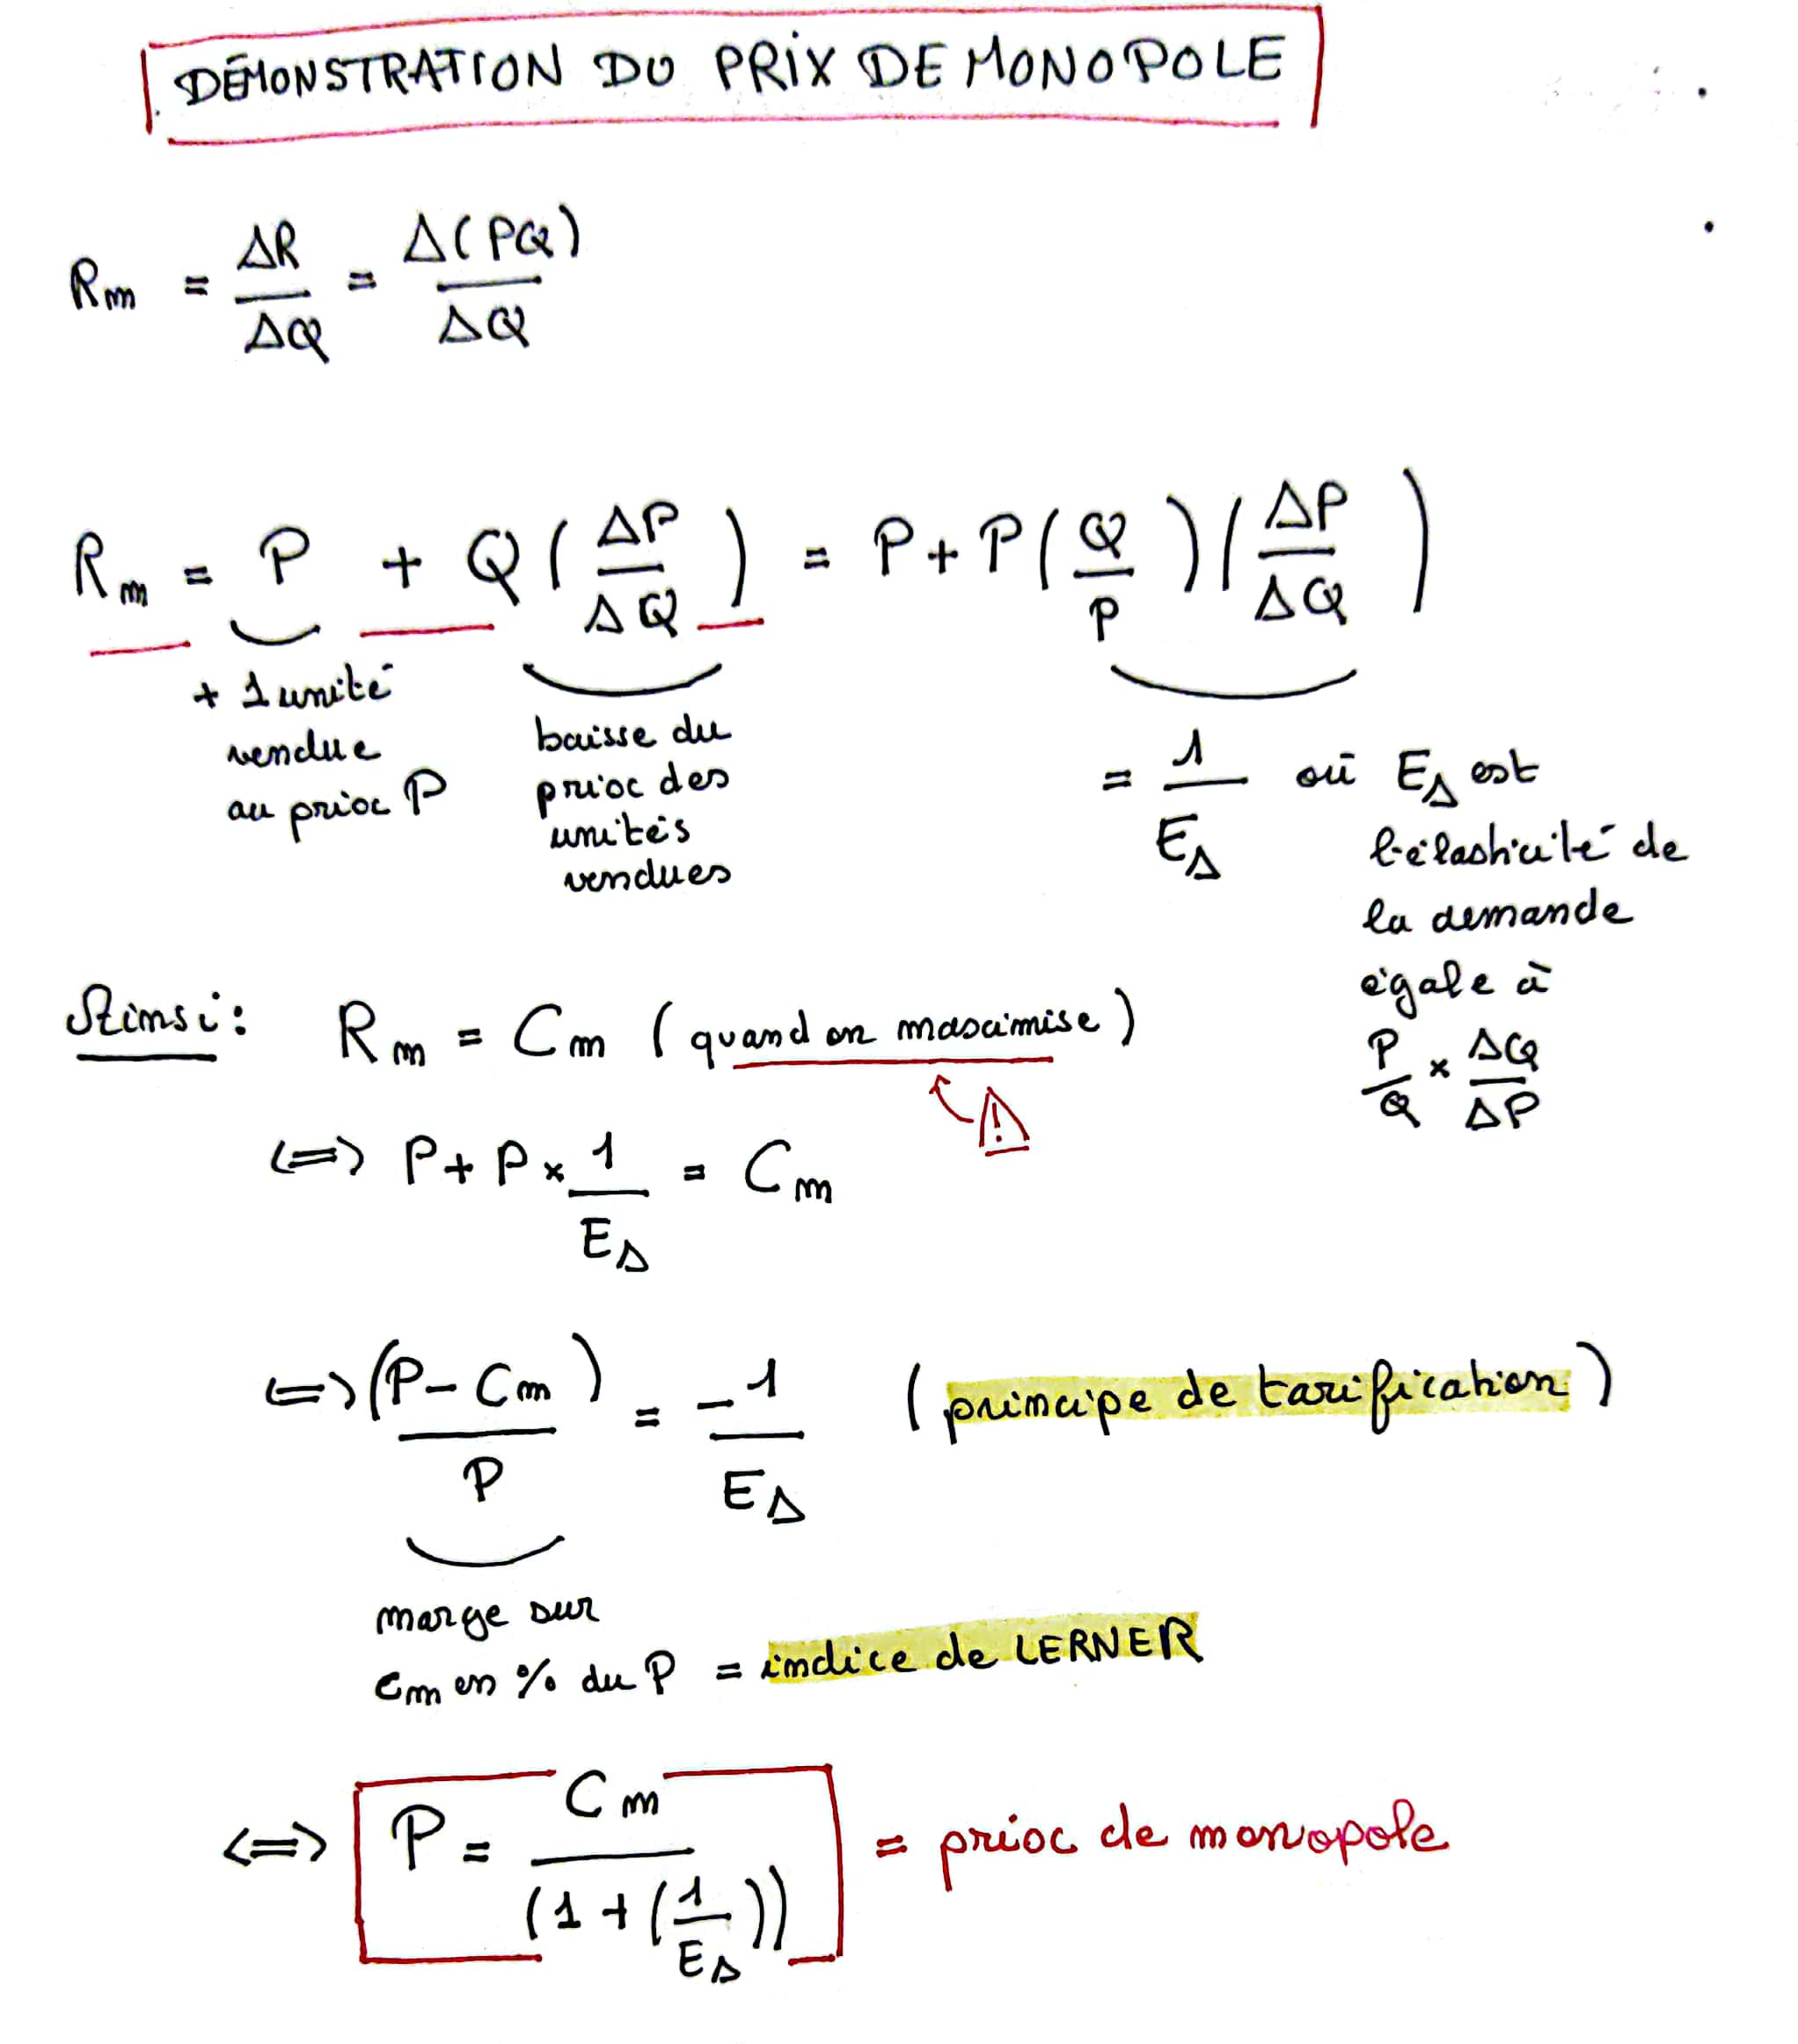 DÉMONSTRATION DU PRIX DE MONOPOLE
Rm = ΔR/ΔQ = Δ(PQ)/ΔQ
Rm = P + Q(ΔP/ΔQ) = P + P(Q/P)(ΔP/ΔQ)
+ 1 unité
vendue
au prix P
baisse du
prix des
unités
vendues
= 1/EΔ où EΔ est
l'élasticité de
la demande
égale à
P/Q × ΔQ/ΔP
Ainsi : Rm = Cm (quand on maximise)
!
<=> P + P × 1/EΔ = Cm
<=> (P - Cm)/P = -1/EΔ (principe de tarification)
marge sur
Cm en % du P = indice de LERNER
<=> P = Cm/(1 + (1/EΔ)) = prix de monopole